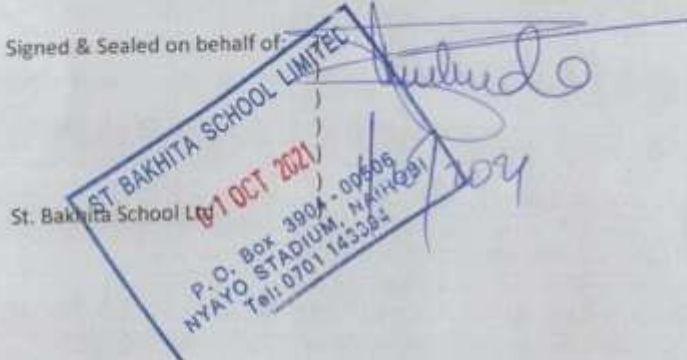 Signed & Sealed on behalf of
)
)
)
)
St. Bakhita School Ltd
ST BAKHITA SCHOOL LIMITED
01 OCT 2021
P. O. Box 3904 - 00506
NYAYO STADIUM, NAIROBI
Tel: 0701 143384